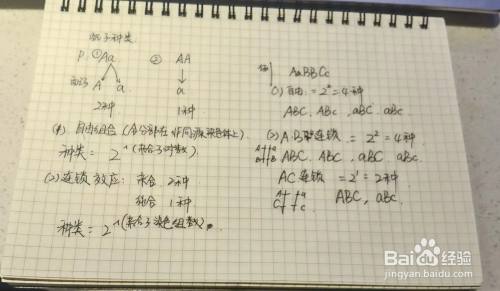 配子种类
P. ① Aa ② AA
配子 A a a
2种 1种
(1) 自由组合 (分布在非同源染色体上)
种类 = 2^(杂合子对数)
(2) 连锁效应: 杂合 2种
纯合 1种
种类 = 2^(杂合子染色组数).
例 AaBBCc
(1) 自由: = 2² = 4种
ABC. ABc. aBC. aBc
(2) A.B连锁 = 2² = 4种
A a
B B ABC. ABc. aBC aBc.
AC连锁 = 2¹ = 2种
A a
C c ABC, aBc.
Baidu经验
jingyan.baidu.com